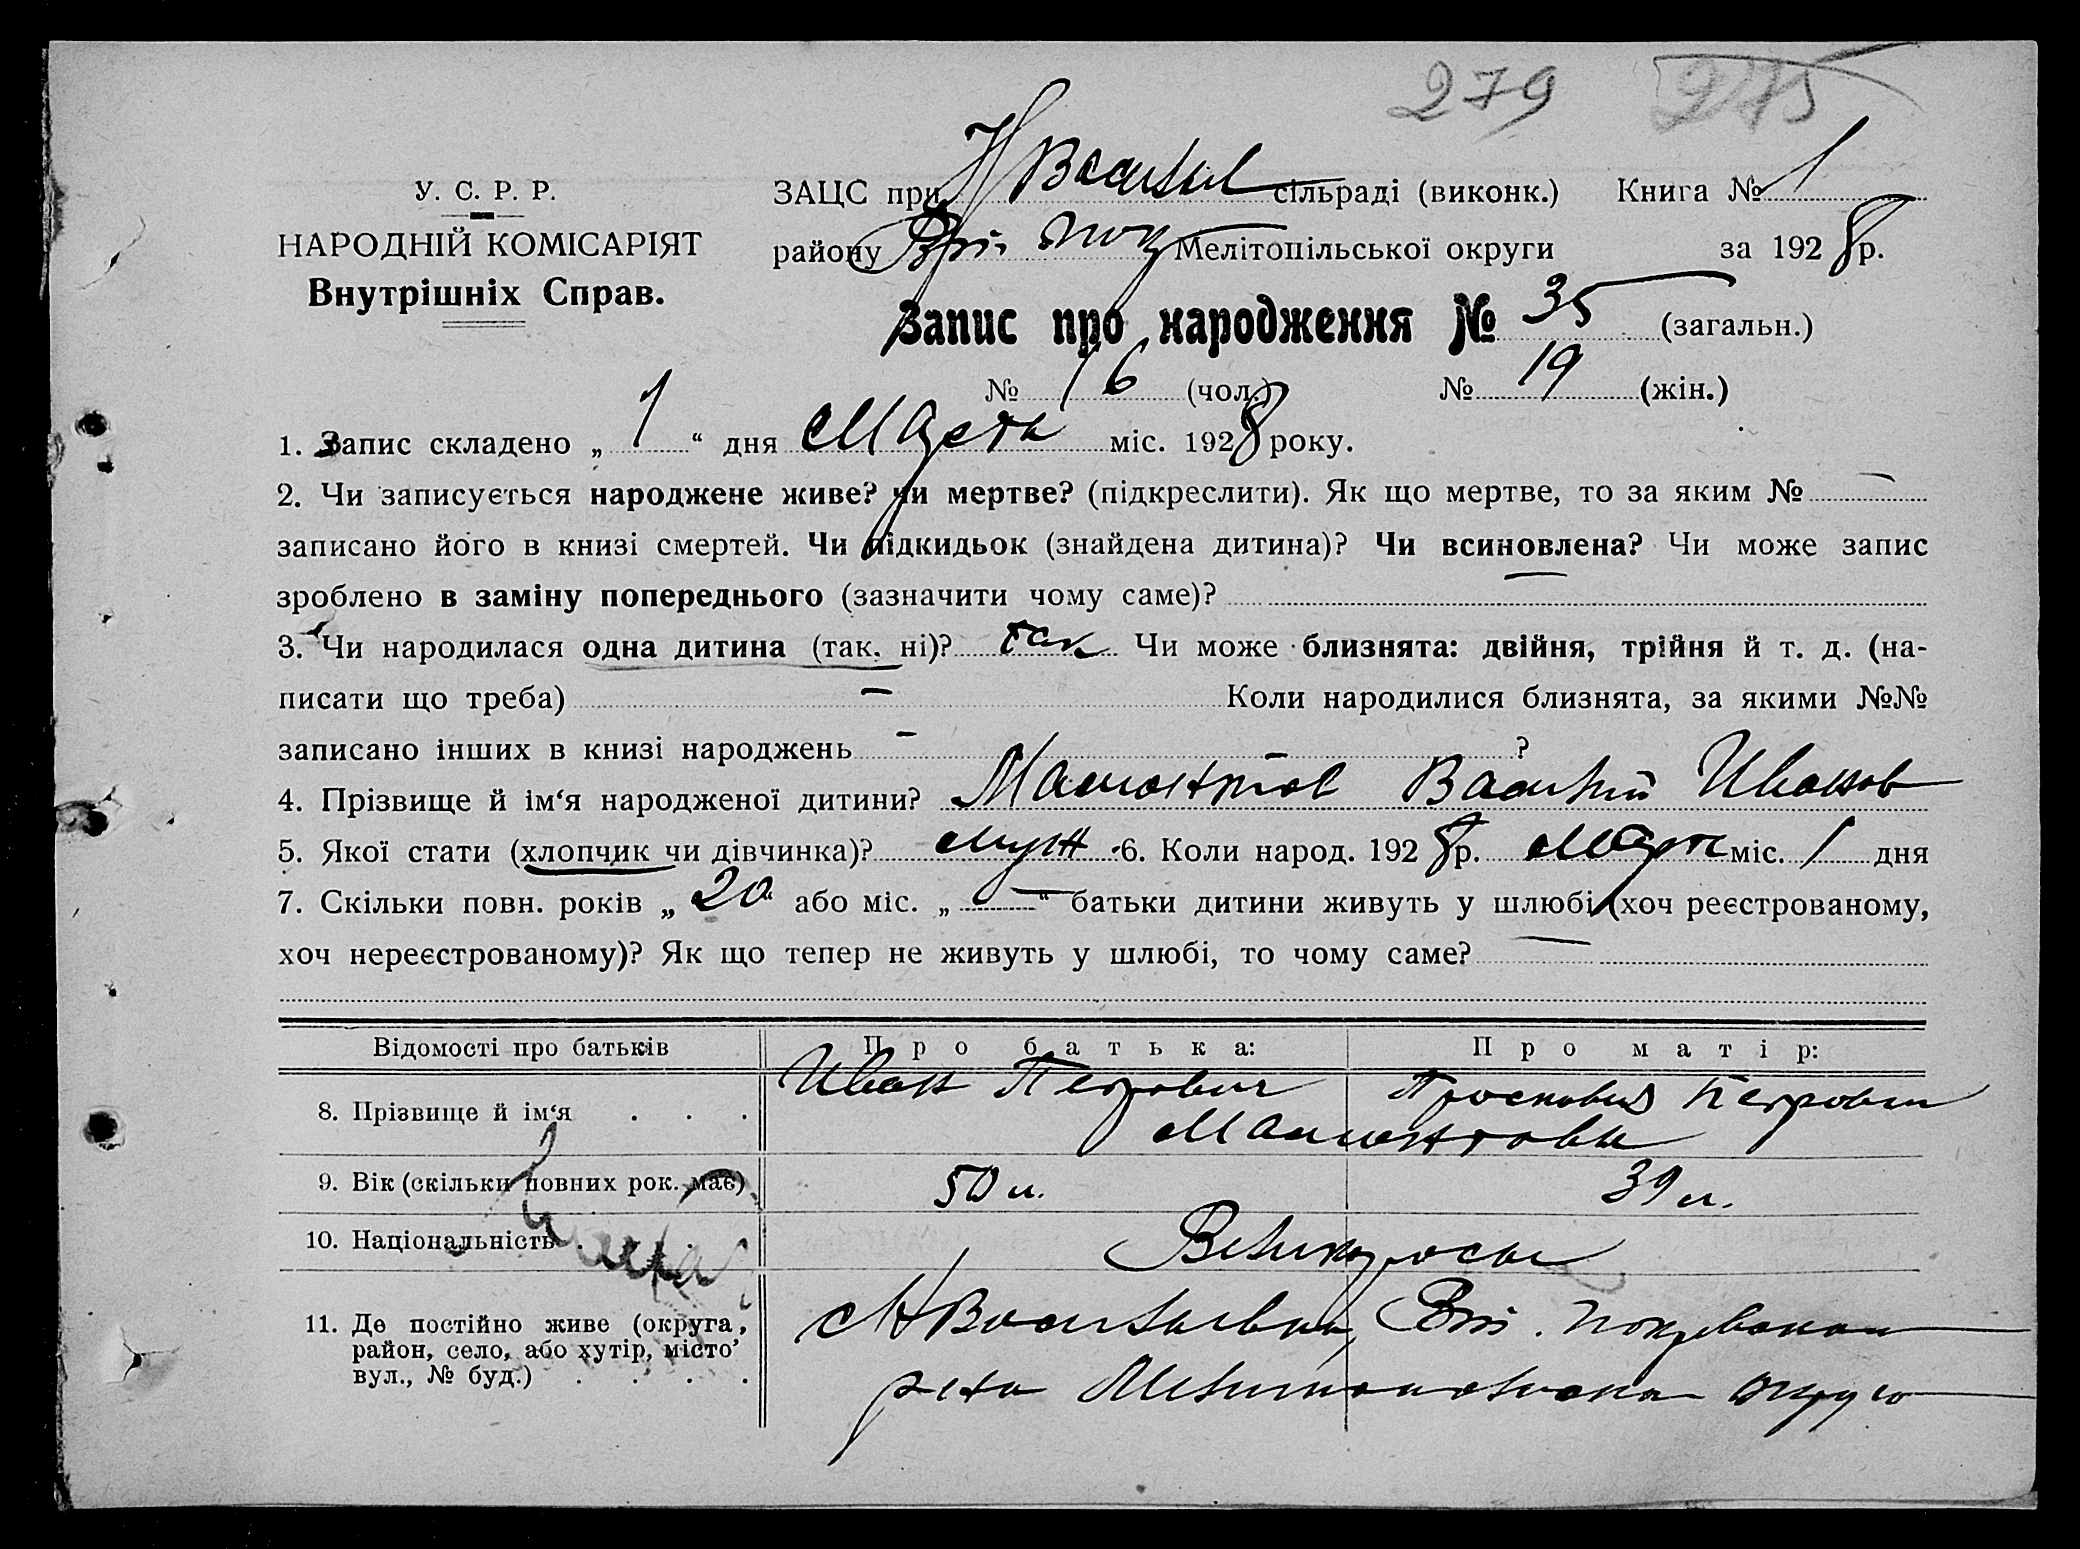 279 275
У. С. Р. Р.
НАРОДНІЙ КОМІСАРІЯТ
Внутрішніх Справ.
ЗАЦС при Н Васильев сільраді (виконк.) Книга № 1
району Мелітопільської округи за 1928 р.
Запис про народження № 35 (загальн.)
№ 16 (чол.) № 19 (жін.)
1. Запис складено „ 1 “ дня Марта міс. 1928 року.
2. Чи записується народжене живе? чи мертве? (підкреслити). Як що мертве, то за яким № —
записано його в книзі смертей. Чи підкидьок (знайдена дитина)? Чи всиновлена? Чи може запис
зроблено в заміну попереднього (зазначити чому саме)? —
3. Чи народилася одна дитина (так, ні)? так Чи може близнята: двійня, трійня й т. д. (на-
писати що треба) — Коли народилися близнята, за якими №№
записано інших в книзі народжень — ?
4. Прізвище й ім‘я народженої дитини? Мамонтов Василий Иванов
5. Якої стати (хлопчик чи дівчинка)? муж 6. Коли народ. 1928 р. Март міс. 1 дня
7. Скільки повн. років „ 20 “ або міс. „ — “ батьки дитини живуть у шлюбі (хоч реєстрованому,
хоч нереєстрованому)? Як що тепер не живуть у шлюбі, то чому саме? —
Відомості про батьків Про батька: Про матір:
8. Прізвище й ім‘я . . . Иван Петрович Просковия Петровна
Мамонтовы
9. Вік (скільки повних рок. має) 50 л. 39 л.
10. Національність . . . Великоросы
11. Де постійно живе (округа, район, село, або хутір, місто, вул., № буд.) . . . . с Н Васильевка, Покровского
р-на Мелитопольского округа